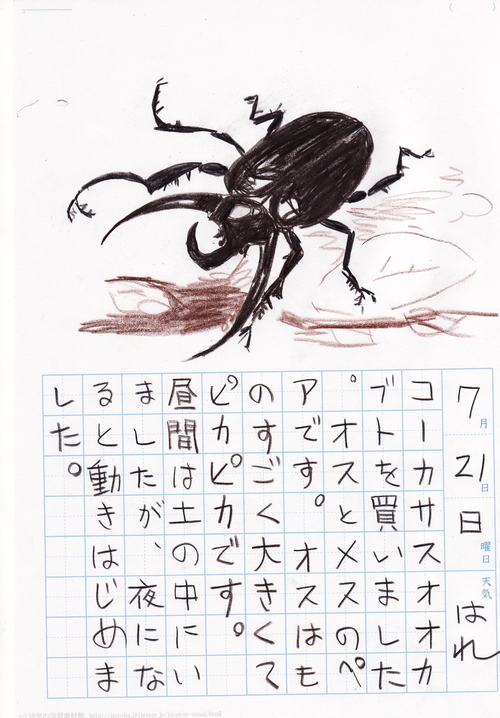 7月21日日曜日天気はれ
コーカサスオオカ
ブトを買いました
。オスとメスのペ
アです。オスはも
のすごく大きくて
ピカピカです。
昼間は土の中にい
ましたが、夜にな
ると動きはじめま
した。